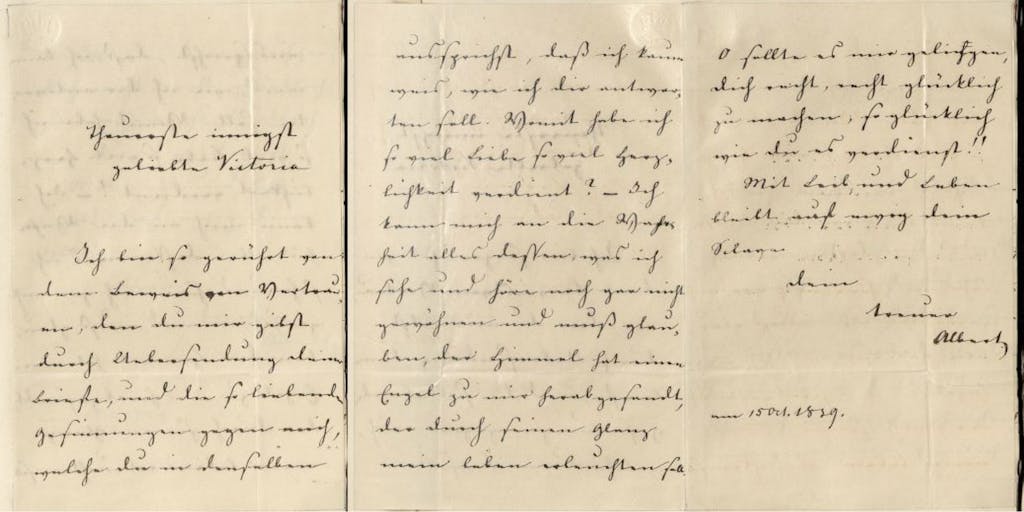 Theuerste innigst
geliebte Victoria
Ich bin so gerührt von
dem Beweis von Vertrau-
en, den du mir gibst
durch Uebersendung deiner
Briefe, und die so liebende
Gesinnungen gegen mich,
welche du in denselben
aussprichst, daß ich kaum
weis, wie ich dir antwor-
ten soll. Womit habe ich
so viel Liebe so viel Herz-
lichkeit verdient? – Ich
kann mich an die Wahr-
heit alles dessen, was ich
sehe und höre noch gar nicht
gewöhnen und muß glau-
ben, der Himmel hat einen
Engel zu mir herabgesandt,
der durch seinen Glanz
mein Leben erleuchten soll.
O sollte es mir gelingen,
dich recht, recht glücklich
zu machen, so glücklich
wie du es verdienst!!
Mit Leib und Leben
bleibt auf ewig dein
Sclave
dein
treuer
Albert
am 15 Oct. 1839.